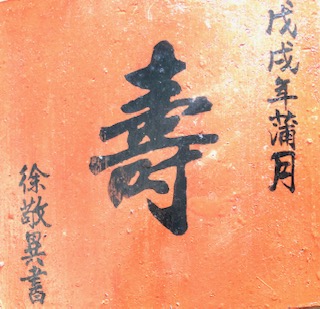 戊戌年蒲月
壽
徐敬異書